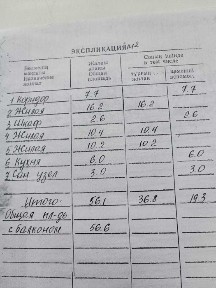 ЭКСПЛИКАЦИЯ
1 Коридор 7.7 7.7
2 Жилая 16.2 16.2
3 Шкаф 2.6 2.6
4 Жилая 10.4 10.4
5 Жилая 10.2 10.2
6 Кухня 6.0 6.0
7 Сан. узел 3.0 3.0
Итого: 56.1 36.8 19.3
Общая пл-дь
с балконом 56.6